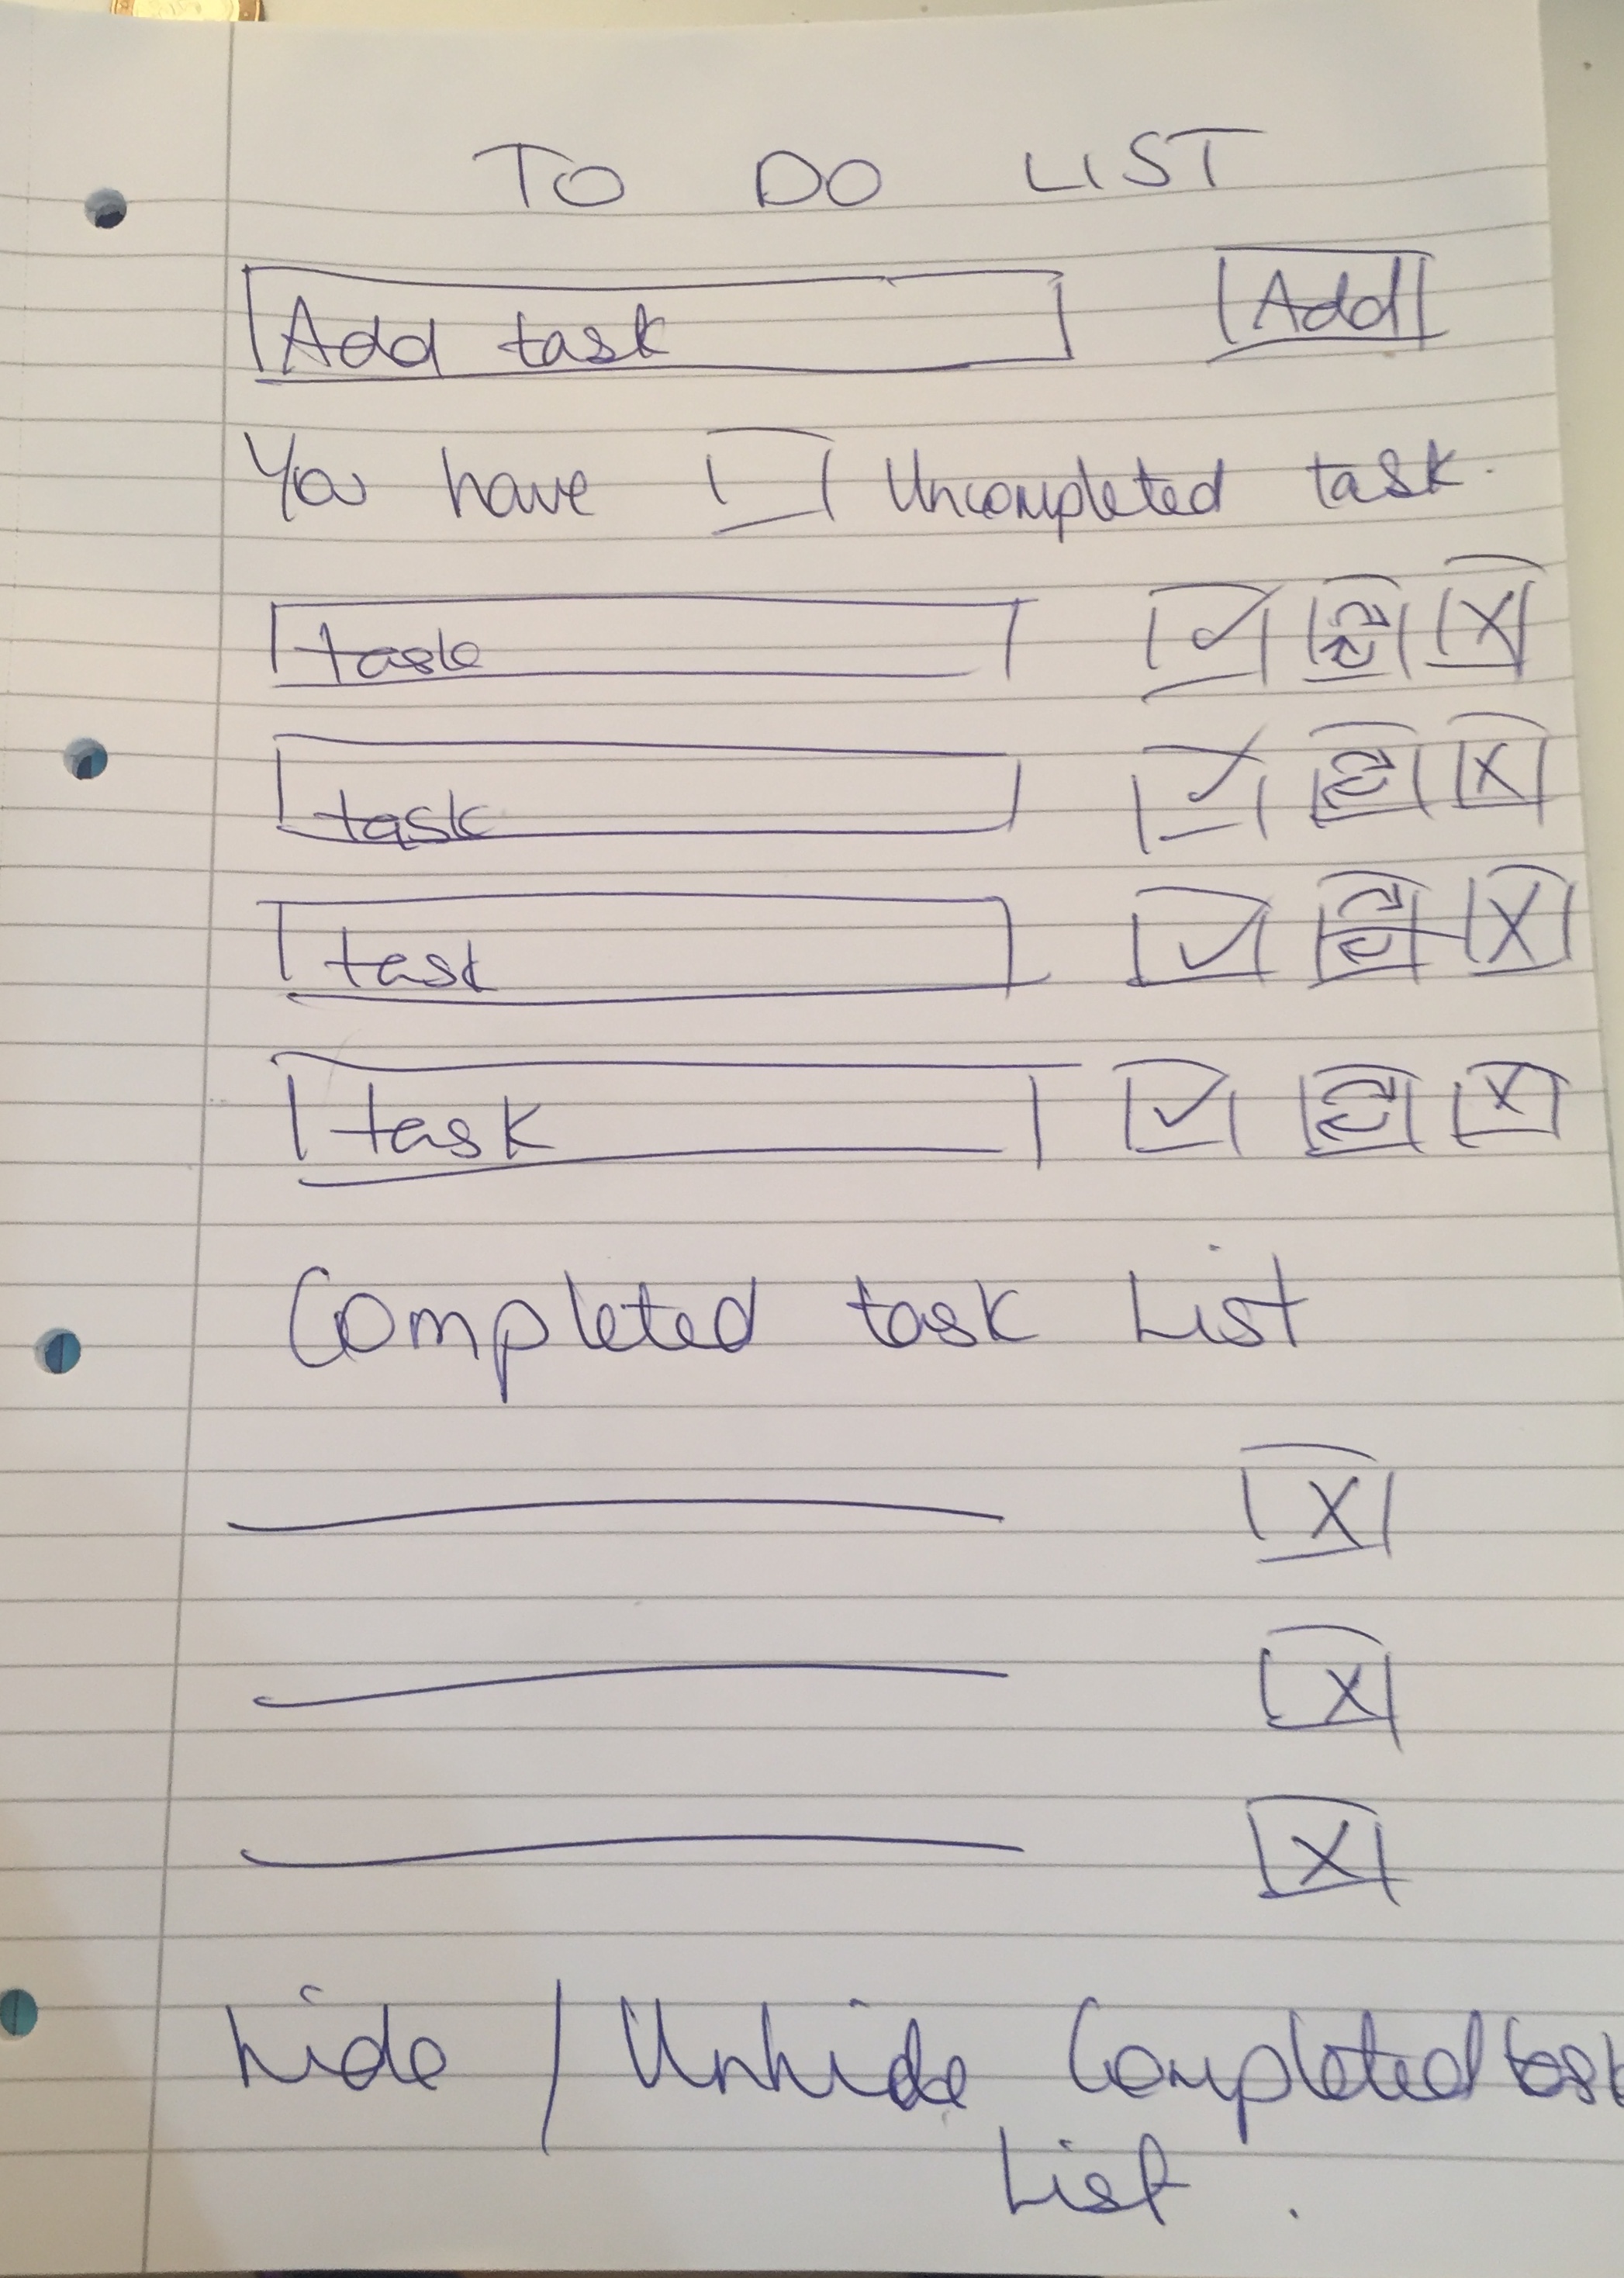 TO DO LIST
Add task Add
You have Uncompleted task.
task X
task X
task X
task X
Completed task List
X
X
X
hide / Unhide Completed task
List.